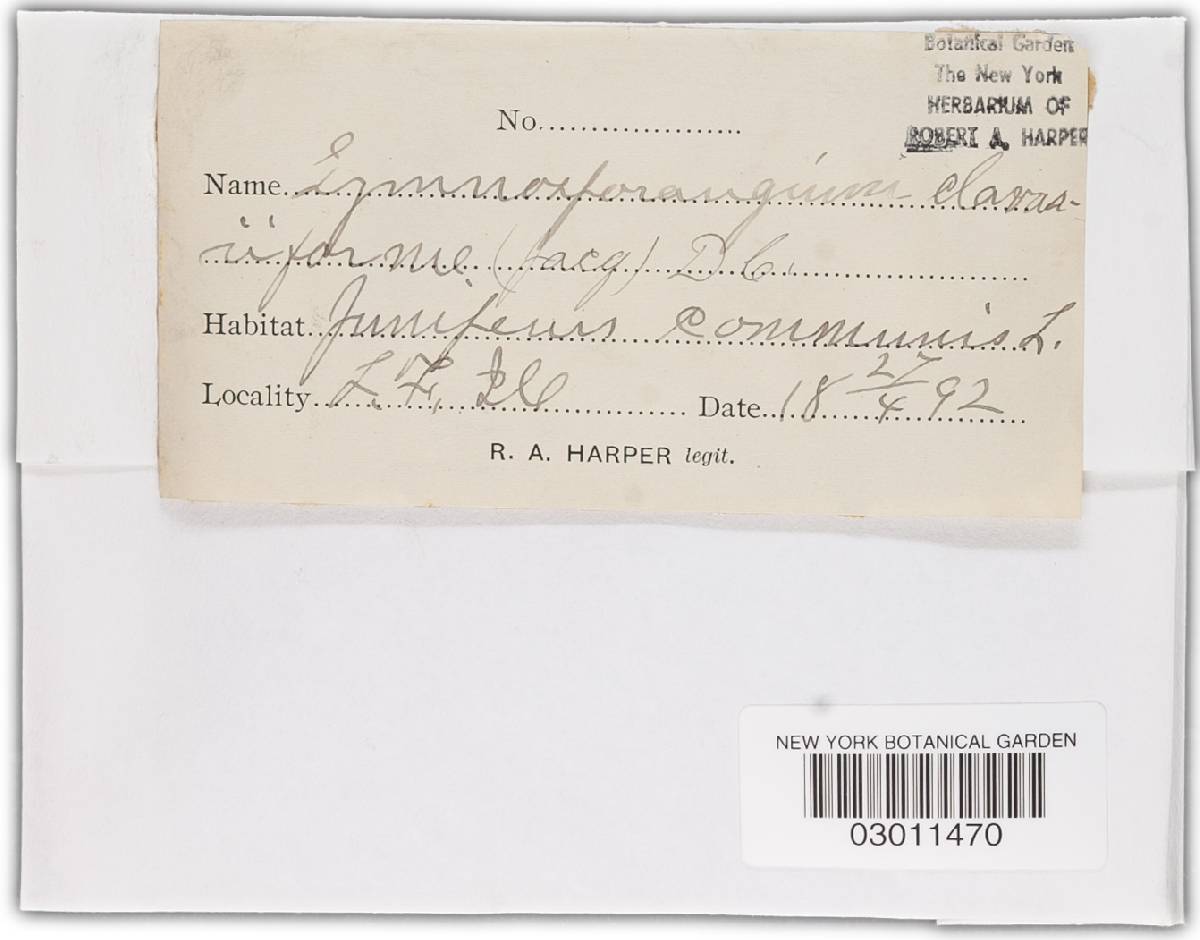 Botanical Garden
The New York
HERBARIUM OF
ROBERT A. HARPER
No.
Name Gymnosporangium clavar-
iiforme (Jacq) DC.
Habitat Juniperus communis L.
Locality L. F. Ill Date 18 27/4 92
R. A. HARPER legit.
NEW YORK BOTANICAL GARDEN
03011470